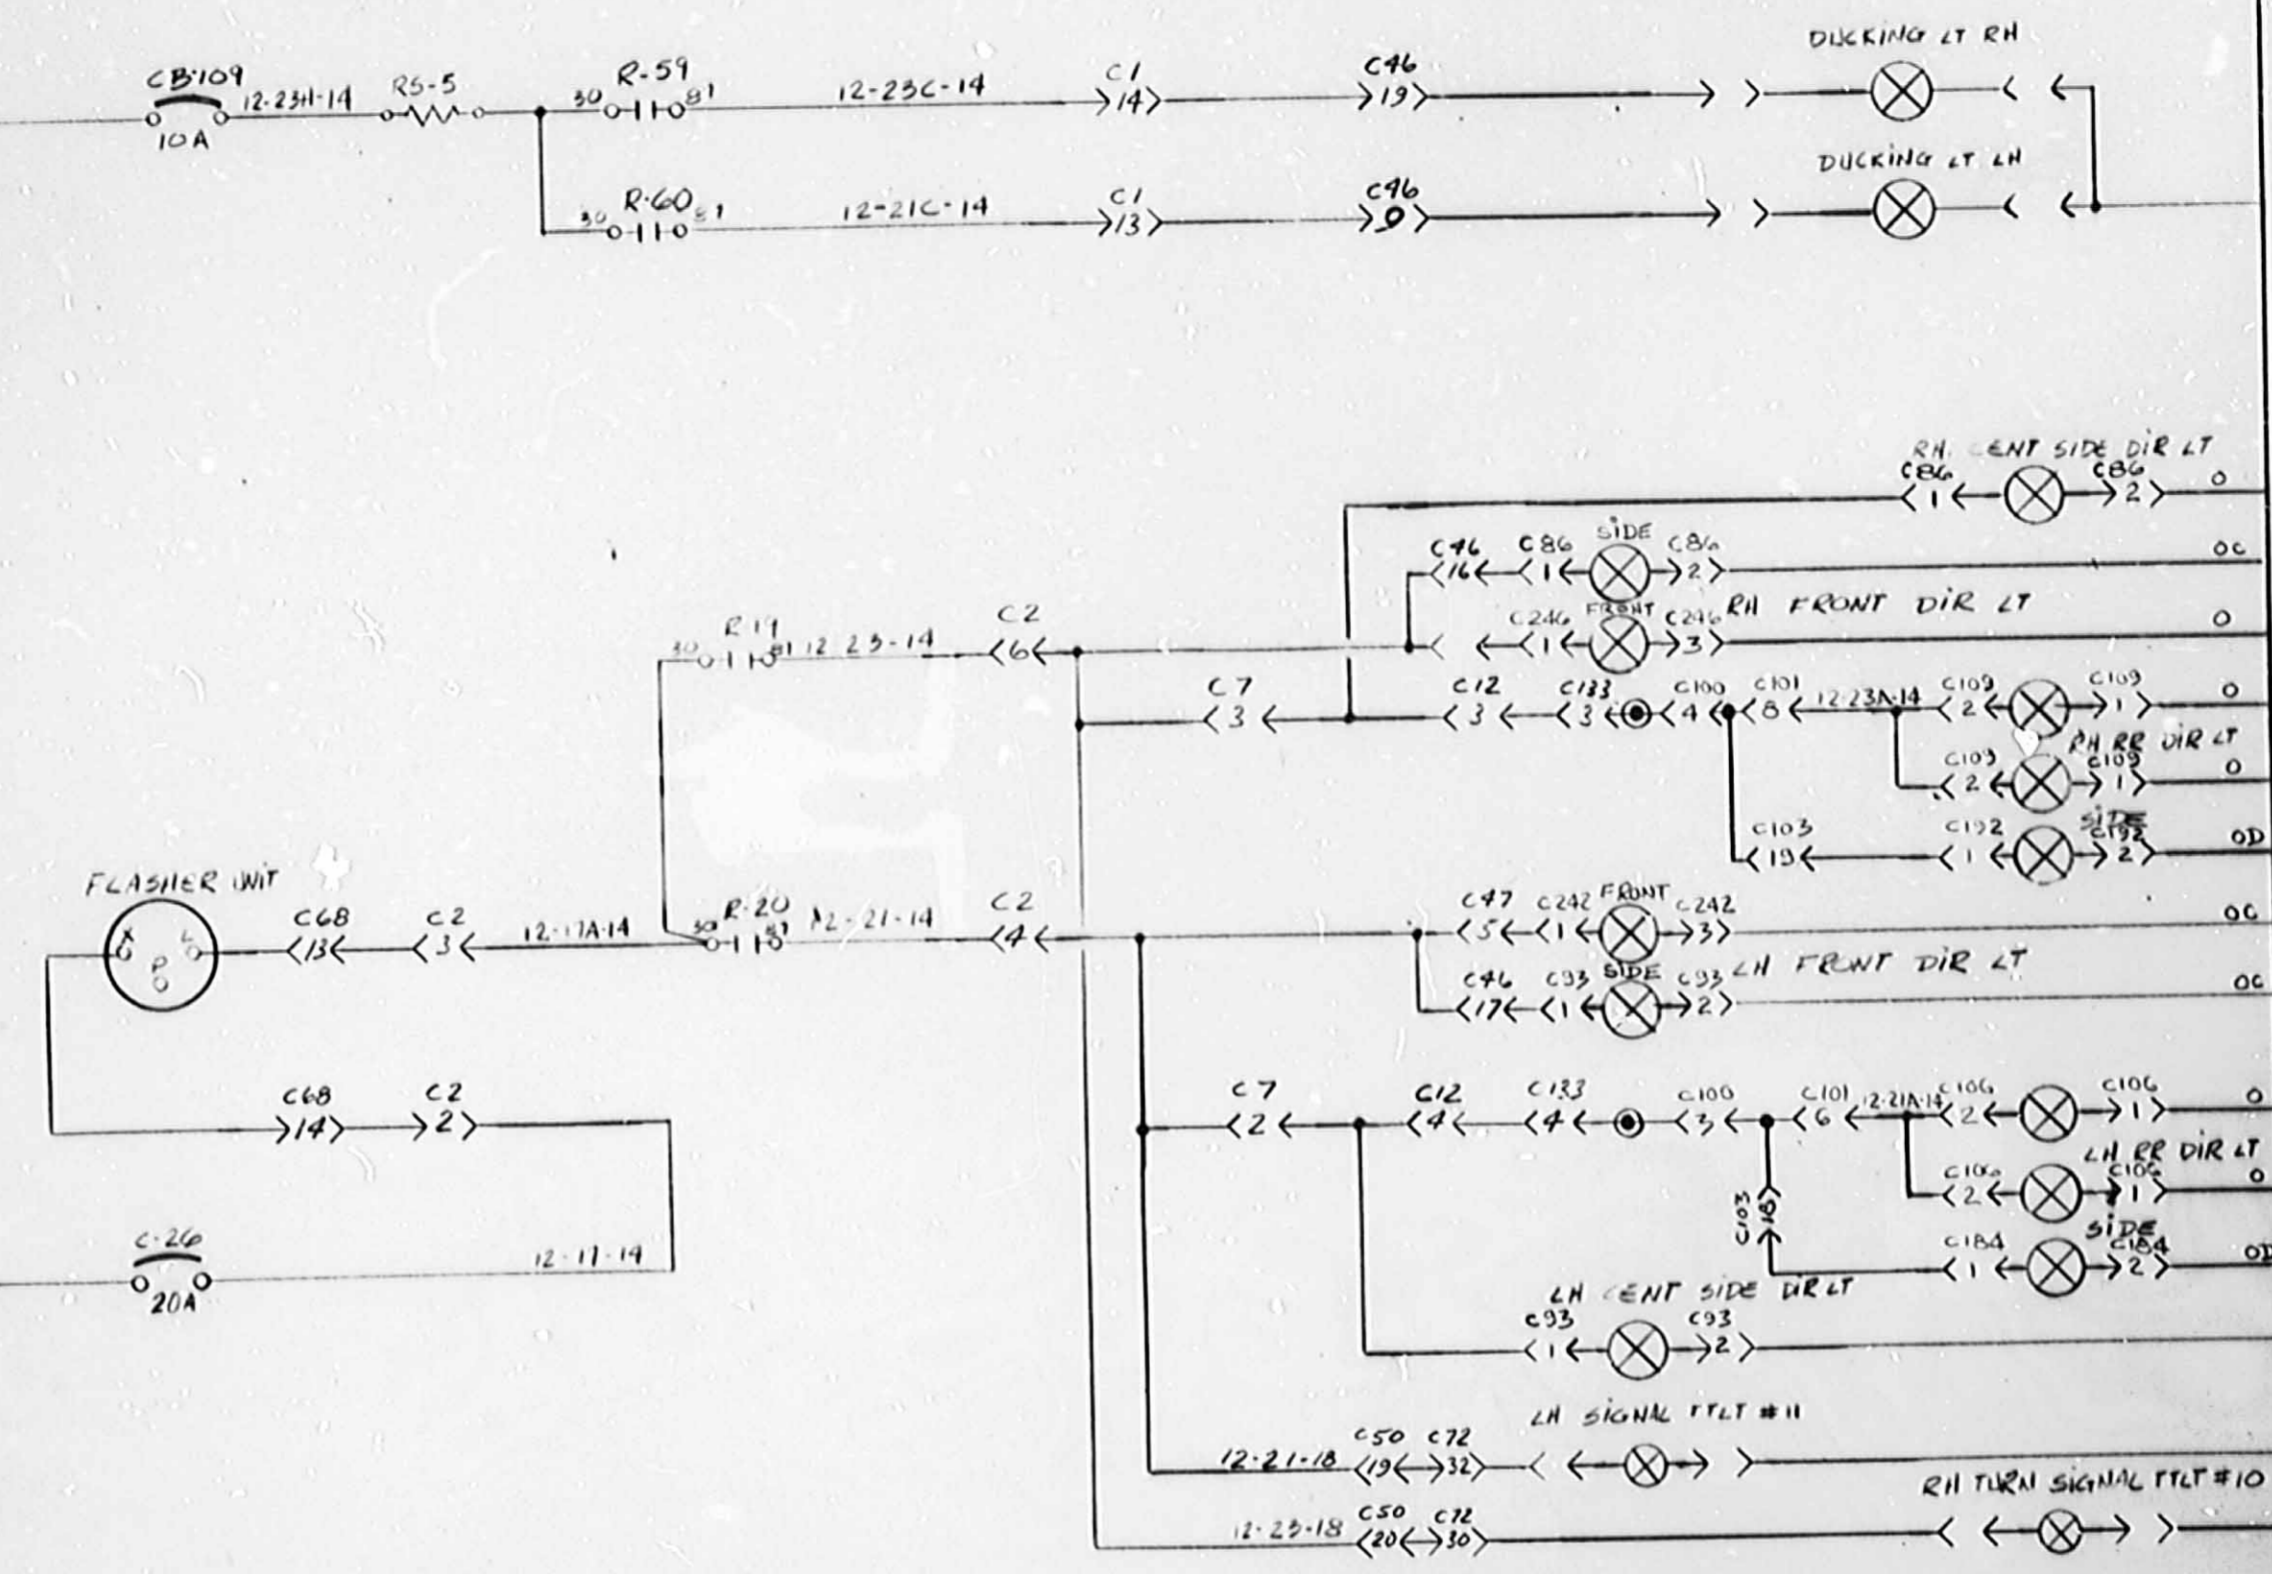 DUCKING LT RH
CB-109 12-23H-14 RS-5 30 R-59 81 12-23C-14 C1 14 C46 19
10A
DUCKING LT LH
30 R-60 81 12-21C-14 C1 13 C46 9
RH ENT SIDE DIR LT
C86 1 C86 2 O
C46 16 C86 1 SIDE C86 2 OC
C246 1 FRONT C246 3 RH FRONT DIR LT O
30 R-19 81 12 23-14 C2 6
C7 3 C12 3 C133 3 C100 4 C101 8 12-23A-14 C109 2 C109 1 O
RH RR DIR LT
C109 2 C109 1 O
SIDE
C103 19 C192 1 C192 2 OD
FLASHER UNIT
C68 13 C2 3 12-17A-14 30 R-20 12-21-14 C2 4
P
C47 5 C242 1 FRONT C242 3 OC
LH FRONT DIR LT
C46 17 C93 1 SIDE C93 2 OC
C68 14 C2 2
C7 2 C12 4 C133 4 C100 3 C101 6 12-21A-14 C106 2 C106 1 O
LH RR DIR LT
C106 2 C106 1 O
SIDE
C103 18 C184 1 C184 2 OD
C-26 12-17-14
20A
LH ENT SIDE DIR LT
C93 1 C93 2
LH SIGNAL TTLT #11
12-21-18 C50 19 C72 32
RH TURN SIGNAL TTLT #10
12-23-18 C50 20 C72 30